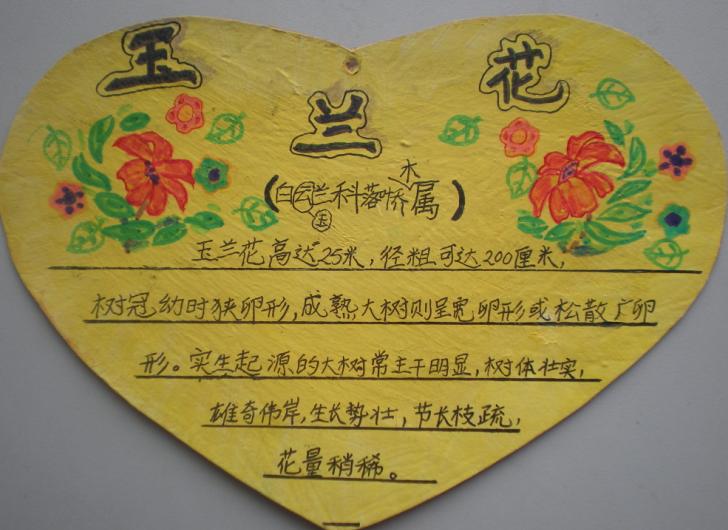 玉兰花
(白玉兰科落叶乔木属)
玉兰花高达25米,径粗可达200厘米,
树冠幼时狭卵形,成熟大树则呈宽卵形或松散广卵
形。实生起源的大树常主干明显,树体壮实,
雄奇伟岸,生长势壮,节长枝疏,
花量稍稀。